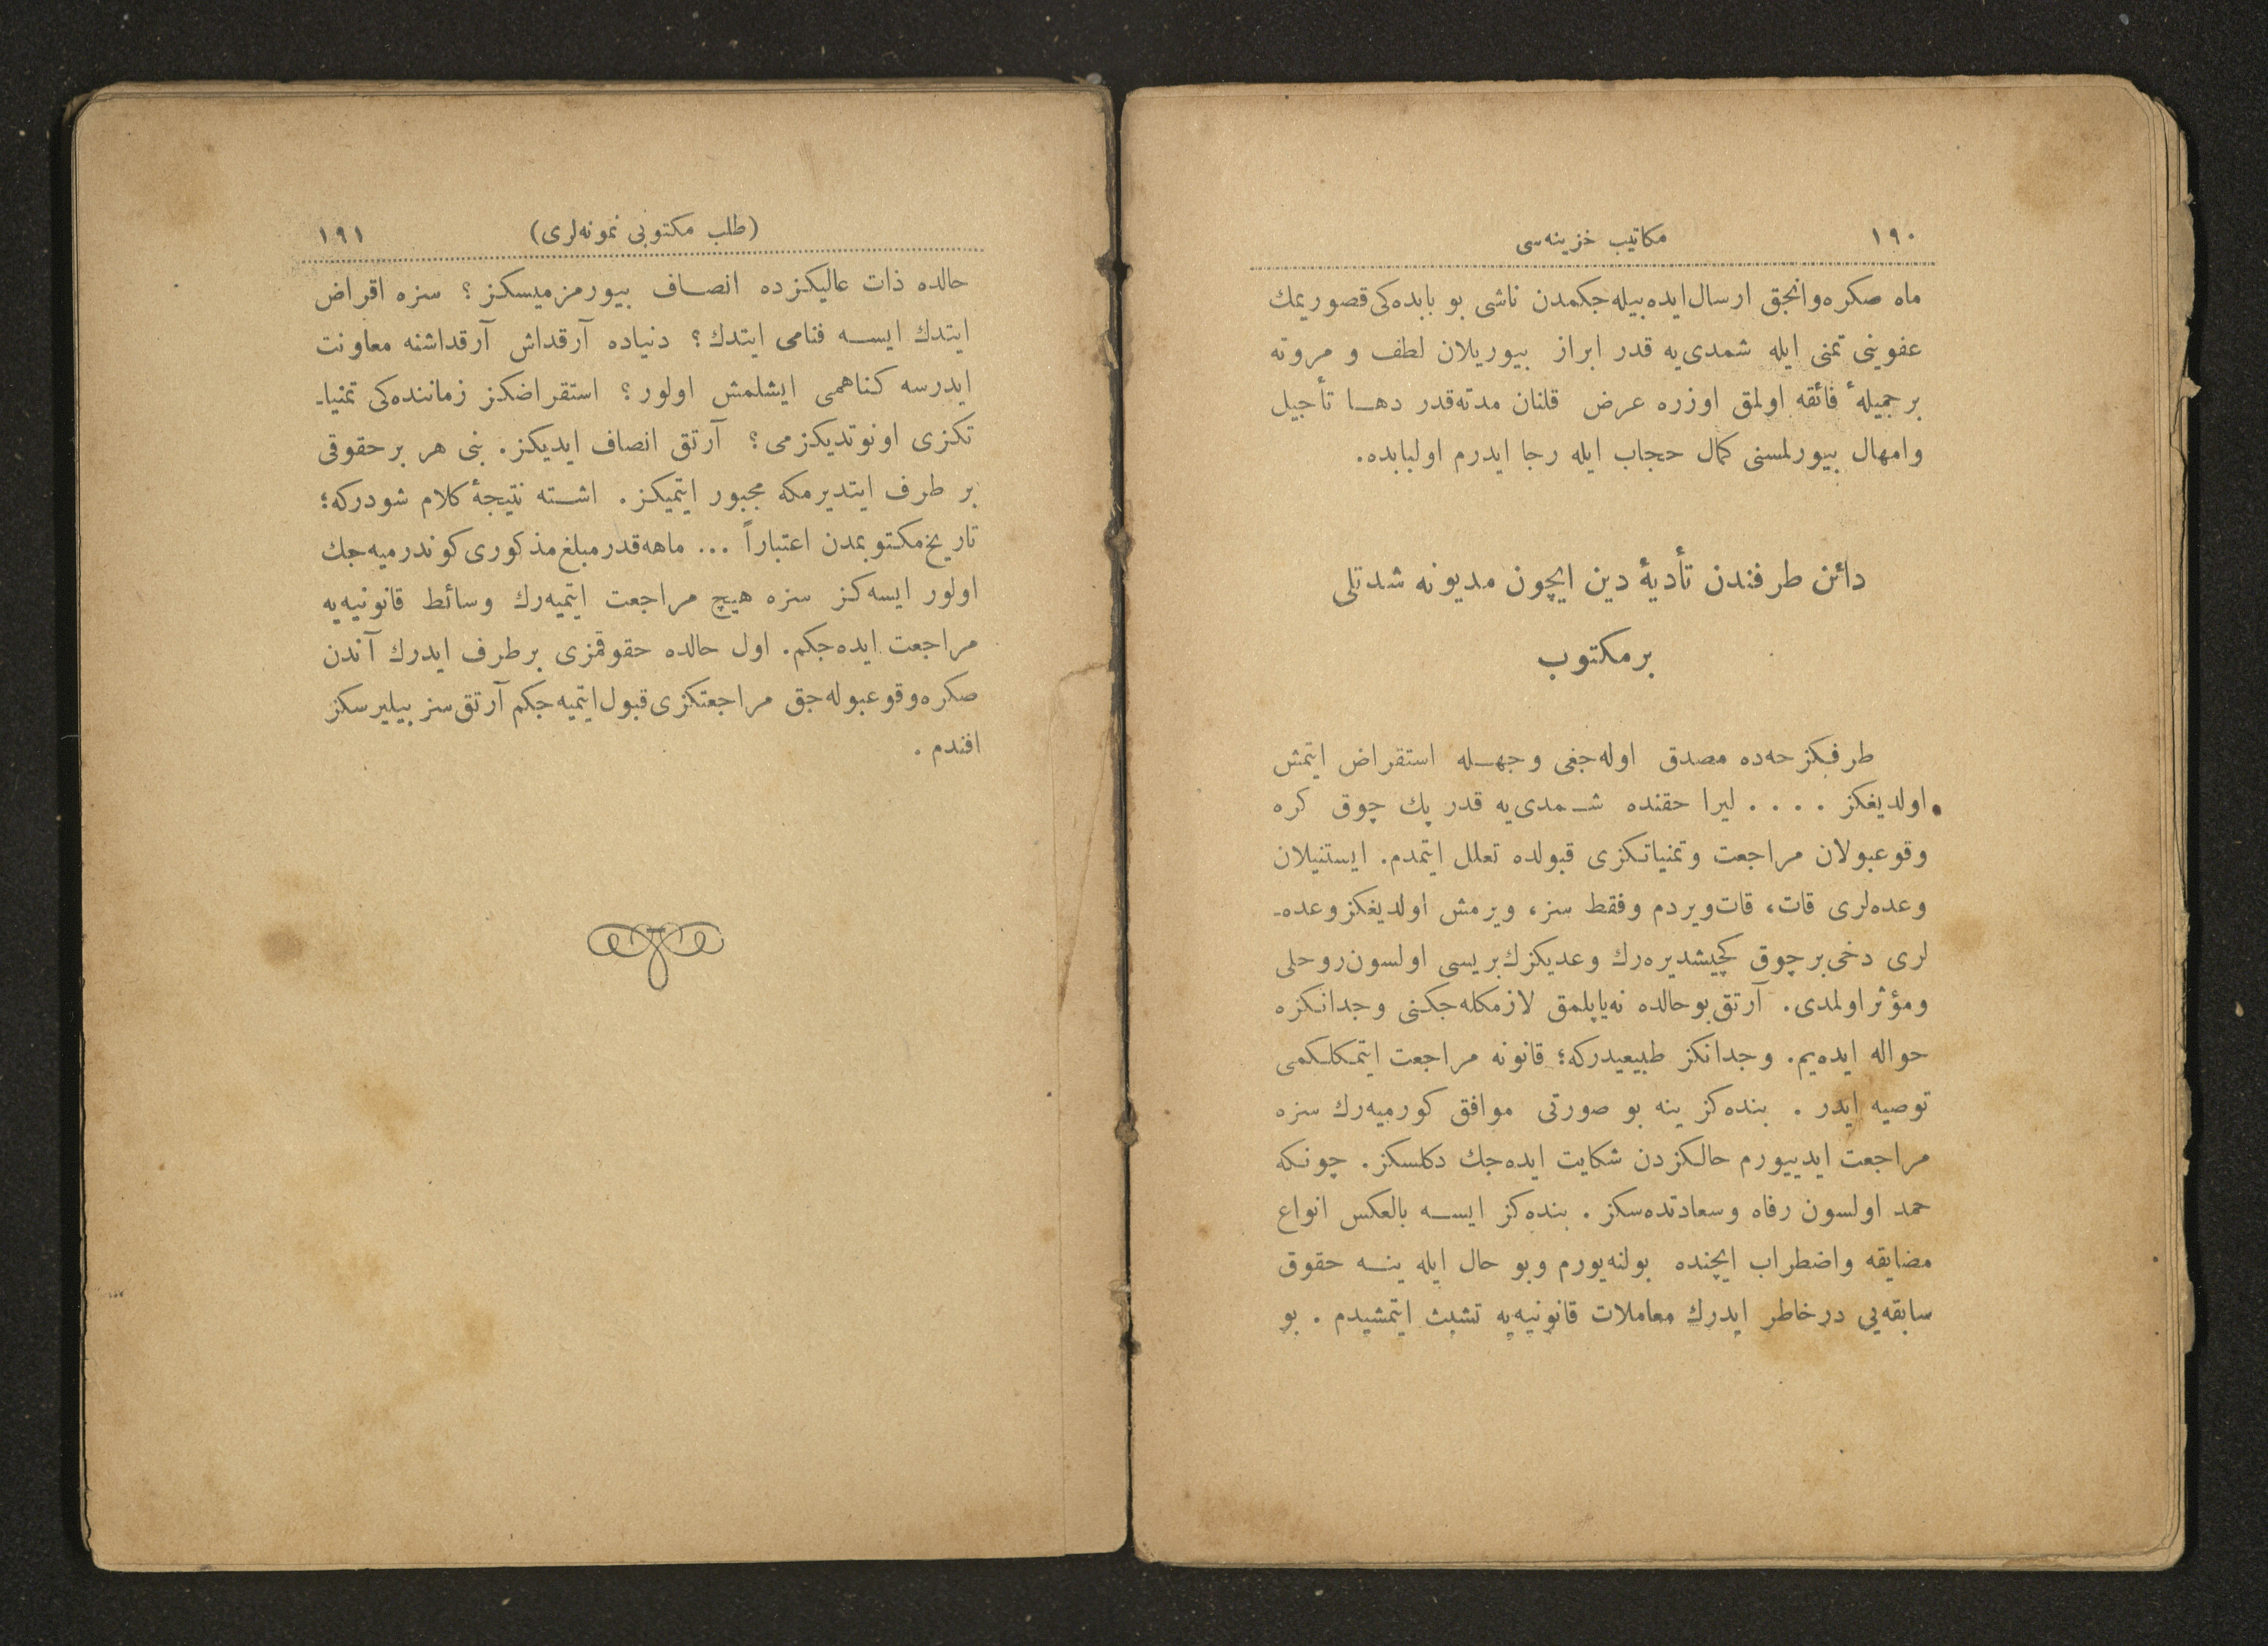 ١٩٠
مكاتيب خزينه‌سى
ماه صكره وانجق ارسال ايده بيله جكمدن ناشى بو بابده كى قصوريمك
عفوينى تمنى ايله شمدى يه قدر ابراز بيوريلان لطف و مروته
بر جميلهٔ فائقه اولمق اوزره عرض قلنان مدته قدر دهـا تأجيل
وامهال بيورلمسنى كمال حجاب ايله رجا ايدرم اولبابده.
دائن طرفندن تأديهٔ دين ايچون مديونه شدتلى
بر مكتوب
طرفكزجه ده مصدق اوله جغى وجهـله استقراض ايتمش
اولديغكز . . . . ليرا حقنده شـمدى يه قدر پك چوق كره
وقوعبولان مراجعت وتمنياتكزى قبولده تعلل ايتمدم. ايستنيلان
وعده لرى قات، قات ويردم وفقط سز، ويرمش اولديغكز وعده-
لرى دخى بر چوق كچيشديره رك وعديكزك بريسى اولسون روحلى
ومؤثر اولمدى. آرتق بو حالده نه ياپلمق لازمكله جكنى وجدانكزه
حواله ايده يم. وجدانكز طبيعيدركه؛ قانونه مراجعت ايتمكلكمى
توصيه ايدر . بنده كز ينه بو صورتى موافق كورميه رك سزه
مراجعت ايدييورم حالكزدن شكايت ايده جك دكلسكز. چونكه
حمد اولسون رفاه وسعادتده سكز . بنده كز ايسـه بالعكس انواع
مضايقه واضطراب ايچنده بولنه يورم وبو حال ايله ينـه حقوق
سابقه يى درخاطر ايدرك معاملات قانونيه يه تشبث ايتمشيدم . بو
(طلب مكتوبى نمونه لرى)
١٩١
حالده ذات عاليكزده انصـاف بيورمزميسكز ؟ سزه اقراض
ايتدك ايسـه فنامى ايتدك ؟ دنياده آرقداش آرقداشنه معاونت
ايدرسه كناهمى ايشلمش اولور ؟ استقراضكز زماننده كى تمنيا-
تكزى اونوتديكزمى ؟ آرتق انصاف ايديكز. بنى هر بر حقوقى
بر طرف ايتديرمكه مجبور ايتميكز . اشـته نتيجهٔ كلام شودركه؛
تاريخ مكتوبمدن اعتباراً ... ماهه قدر مبلغ مذكورى كوندرميه جك
اولور ايسه كز سزه هيچ مراجعت ايتميه رك وسائط قانونيه يه
مراجعت ايده جكم. اول حالده حقوقمزى بر طرف ايدرك آندن
صكره وقوعبوله جق مراجعتكزى قبول ايتميه جكم آرتق سز بيليرسكز
افندم .